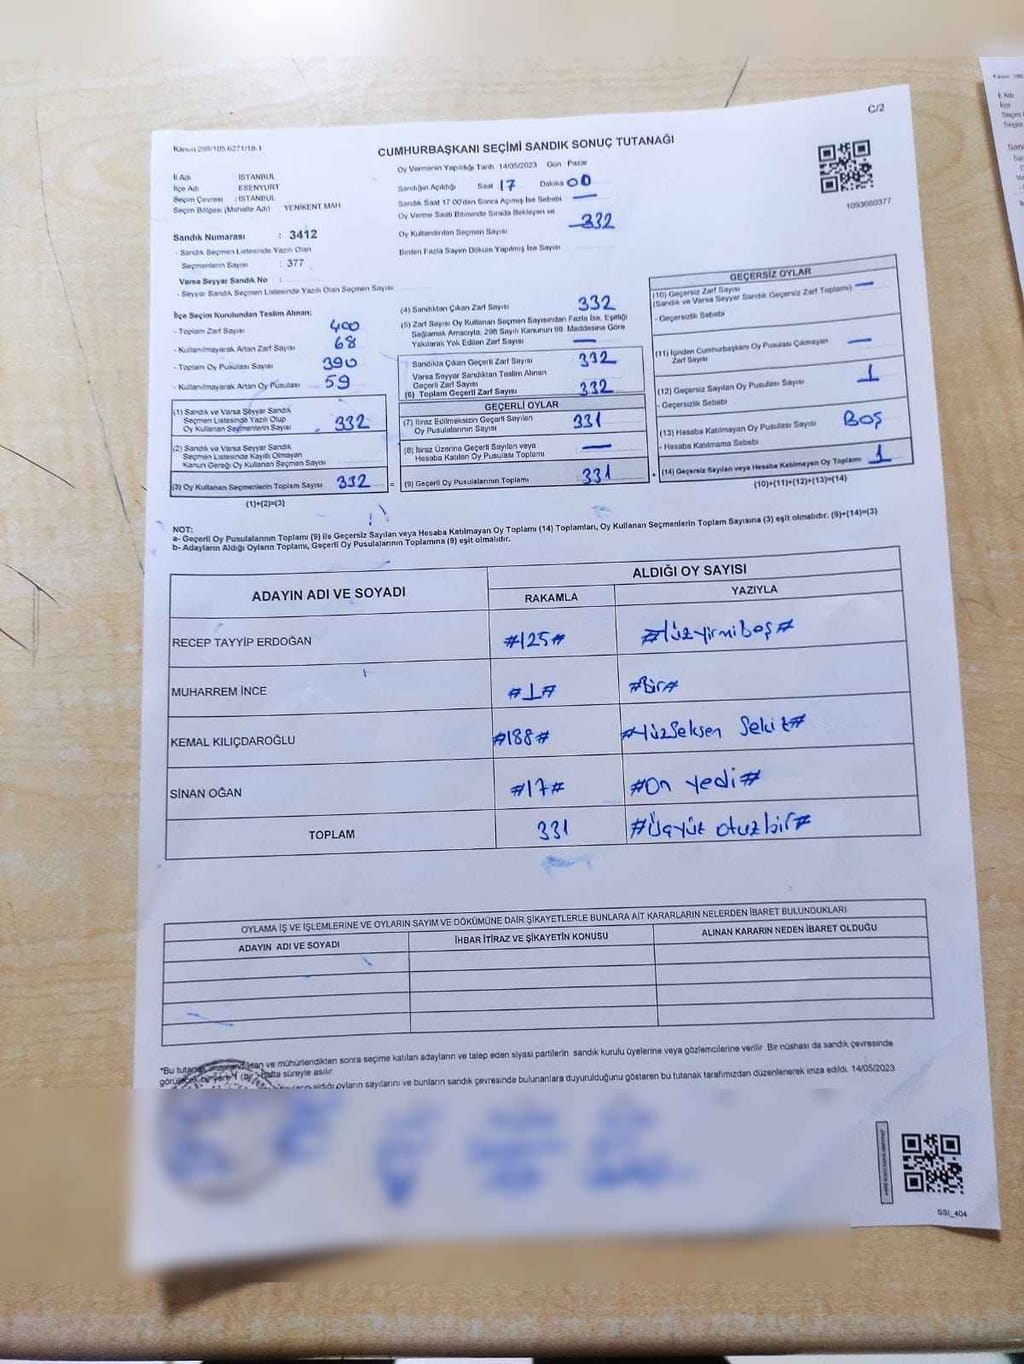 C/2
Kanun 298/105,6271/18-1
CUMHURBAŞKANI SEÇİMİ SANDIK SONUÇ TUTANAĞI
Oy Vermenin Yapıldığı Tarih 14/05/2023 Gün Pazar
İl Adı : İSTANBUL
İlçe Adı : ESENYURT
Seçim Çevresi : İSTANBUL
Seçim Bölgesi (Mahalle Adı) YENİKENT MAH.
Sandığın Açıldığı Saat 17 Dakika 00
Sandık Saat 17.00'den Sonra Açılmış İse Sebebi —
Oy Verme Saati Bitiminde Sırada Bekleyen ve
Oy Kullandırılan Seçmen Sayısı 332
Birden Fazla Sayım Döküm Yapılmış İse Sayısı
1093660377
Sandık Numarası : 3412
- Sandık Seçmen Listesinde Yazılı Olan
Seçmenlerin Sayısı : 377
Varsa Seyyar Sandık No :
- Seyyar Sandık Seçmen Listesinde Yazılı Olan Seçmen Sayısı
İlçe Seçim Kurulundan Teslim Alınan;
- Toplam Zarf Sayısı 400
- Kullanılmayarak Artan Zarf Sayısı 68
- Toplam Oy Pusulası Sayısı 390
- Kullanılmayarak Artan Oy Pusulası 59
(1) Sandık ve Varsa Seyyar Sandık
Seçmen Listesinde Yazılı Olup
Oy Kullanan Seçmenlerin Sayısı 332
(2) Sandık ve Varsa Seyyar Sandık
Seçmen Listesinde Kayıtlı Olmayan
Kanun Gereği Oy Kullanan Seçmen Sayısı
(3) Oy Kullanan Seçmenlerin Toplam Sayısı 332 =
(1)+(2)=(3)
(4) Sandıktan Çıkan Zarf Sayısı 332
(5) Zarf Sayısı Oy Kullanan Seçmen Sayısından Fazla İse, Eşitliği
Sağlamak Amacıyla, 298 Sayılı Kanunun 98. Maddesine Göre
Yakılarak Yok Edilen Zarf Sayısı —
Sandıkta Çıkan Geçerli Zarf Sayısı 332
Varsa Seyyar Sandıktan Teslim Alınan
Geçerli Zarf Sayısı
(6) Toplam Geçerli Zarf Sayısı 332
GEÇERLİ OYLAR
(7) İtiraz Edilmeksizin Geçerli Sayılan
Oy Pusulalarının Sayısı 331
(8) İtiraz Üzerine Geçerli Sayılan veya
Hesaba Katılan Oy Pusulası Toplamı —
(9) Geçerli Oy Pusulalarının Toplamı 331
GEÇERSİZ OYLAR
(10) Geçersiz Zarf Sayısı —
(Sandık ve Varsa Seyyar Sandık Geçersiz Zarf Toplamı)
- Geçersizlik Sebebi
(11) İçinden Cumhurbaşkanı Oy Pusulası Çıkmayan —
Zarf Sayısı
(12) Geçersiz Sayılan Oy Pusulası Sayısı 1
- Geçersizlik Sebebi
(13) Hesaba Katılmayan Oy Pusulası Sayısı BOŞ
- Hesaba Katılmama Sebebi
+ (14) Geçersiz Sayılan veya Hesaba Katılmayan Oy Toplamı 1
(10)+(11)+(12)+(13)=(14)
NOT:
a- Geçerli Oy Pusulalarının Toplamı (9) ile Geçersiz Sayılan veya Hesaba Katılmayan Oy Toplamı (14) Toplamları, Oy Kullanan Seçmenlerin Toplam Sayısına (3) eşit olmalıdır. (9)+(14)=(3)
b- Adayların Aldığı Oyların Toplamı, Geçerli Oy Pusulalarının Toplamına (9) eşit olmalıdır.
ADAYIN ADI VE SOYADI
ALDIĞI OY SAYISI
RAKAMLA YAZIYLA
RECEP TAYYİP ERDOĞAN #125# #Yüzyirmibeş#
MUHARREM İNCE #1# #Bir#
KEMAL KILIÇDAROĞLU #188# #Yüzseksen Sekiz#
SİNAN OĞAN #17# #On yedi#
TOPLAM 331 #Üçyüz otuzbir#
OYLAMA İŞ VE İŞLEMLERİNE VE OYLARIN SAYIM VE DÖKÜMÜNE DAİR ŞİKAYETLERLE BUNLARA AİT KARARLARIN NELERDEN İBARET BULUNDUKLARI
ADAYIN ADI VE SOYADI İHBAR İTİRAZ VE ŞİKAYETİN KONUSU ALINAN KARARIN NEDEN İBARET OLDUĞU
*Bu tutanak ve mühürlendikten sonra seçime katılan adayların ve talep eden siyasi partilerin sandık kurulu üyelerine veya gözlemcilerine verilir. Bir nüshası da sandık çevresinde
hafta süreyle asılır.
aldığı oyların sayılarını ve bunların sandık çevresinde bulunanlara duyurulduğunu gösteren bu tutanak tarafımızdan düzenlenerek imza edildi. 14/05/2023
SSI_404